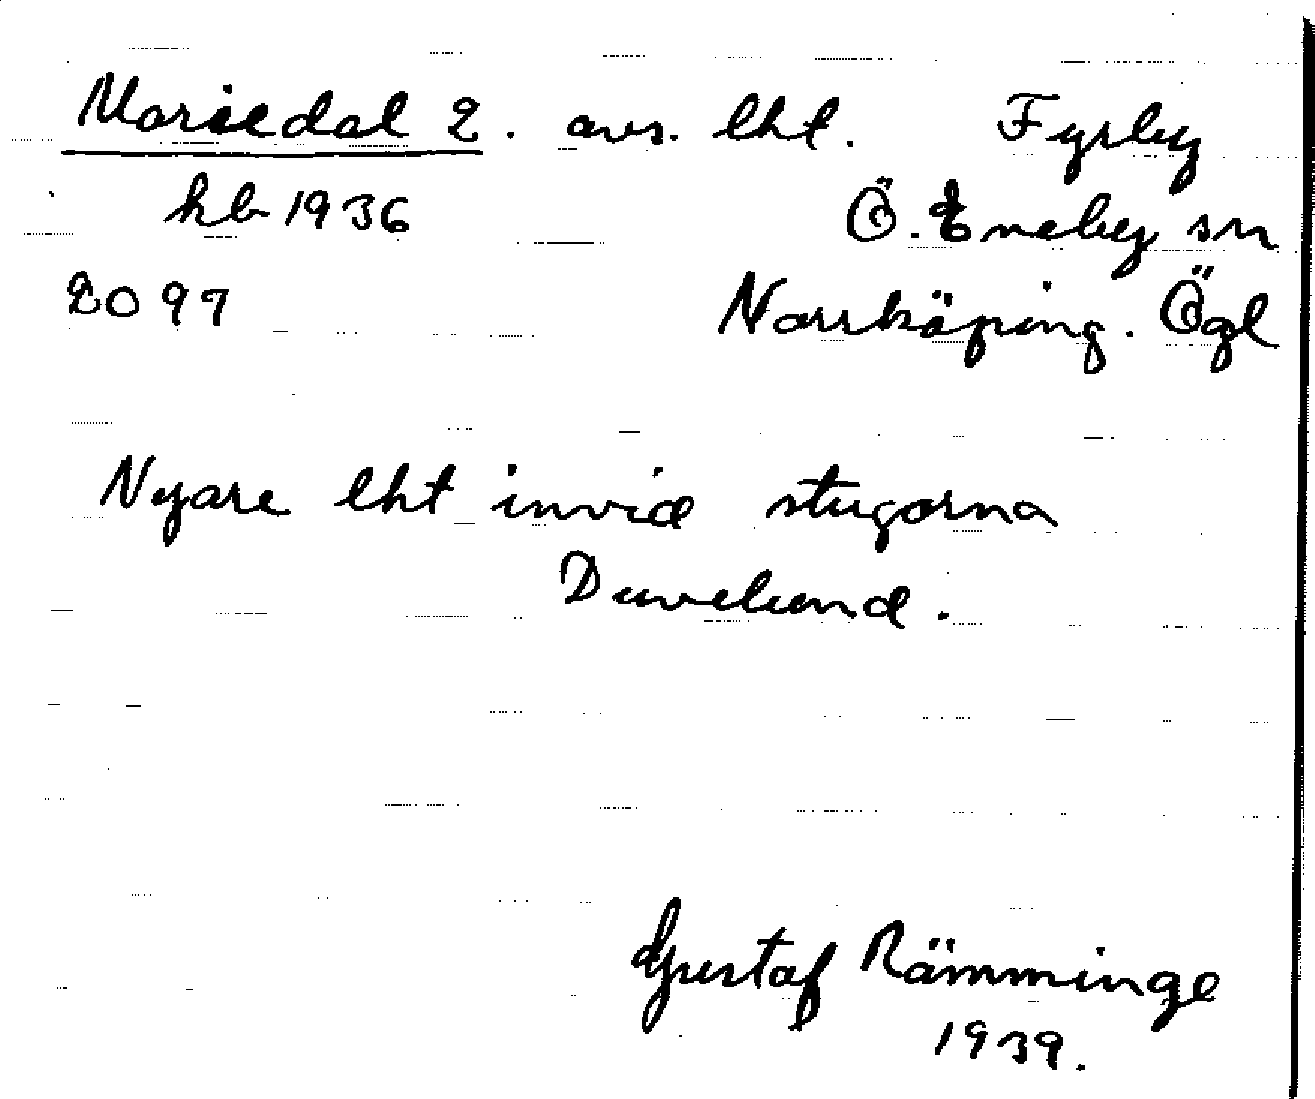 Mariedal 2. avs. lht. Fyrby
hb 1936 Ö. Eneby sn
2097 Norrköping. Ögl
Nyare lht invid stugorna
Duvelund.
Gustaf Rämminge
1939.